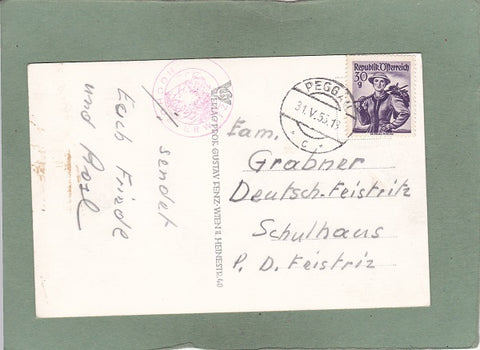 sendet
Euch Friede
und Axel
VERLAG PROF. GUSTAV FENZ-WIEN II HEINESTR. 40
PEGGAU
31.V.55.18
c
Republik Österreich
30
g
Fam.
Grabner
Deutsch-Feistritz
Schulhaus
P. D. Feistriz